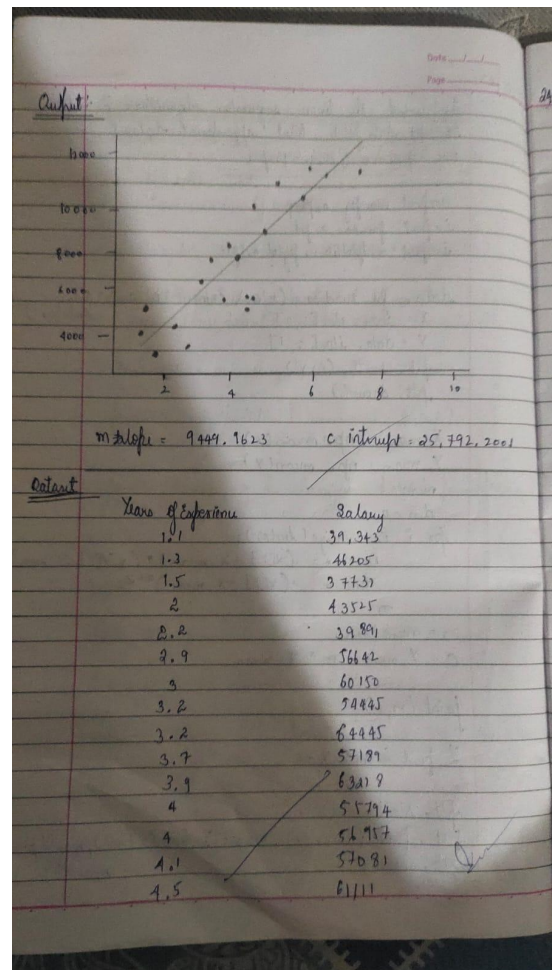 Date
Page
24
Output:
12000
10000
8000
6000
4000
2 4 6 8 10
m slope = 9449.9623 c intrupt = 25,792.2001
Dataset
Years of Experience Salary
1.1 39,343
1.3 46205
1.5 37731
2 43525
2.2 39891
2.9 56642
3 60150
3.2 54445
3.2 64445
3.7 57189
3.9 63218
4 55794
4 56957
4.1 57081
4.5 61111